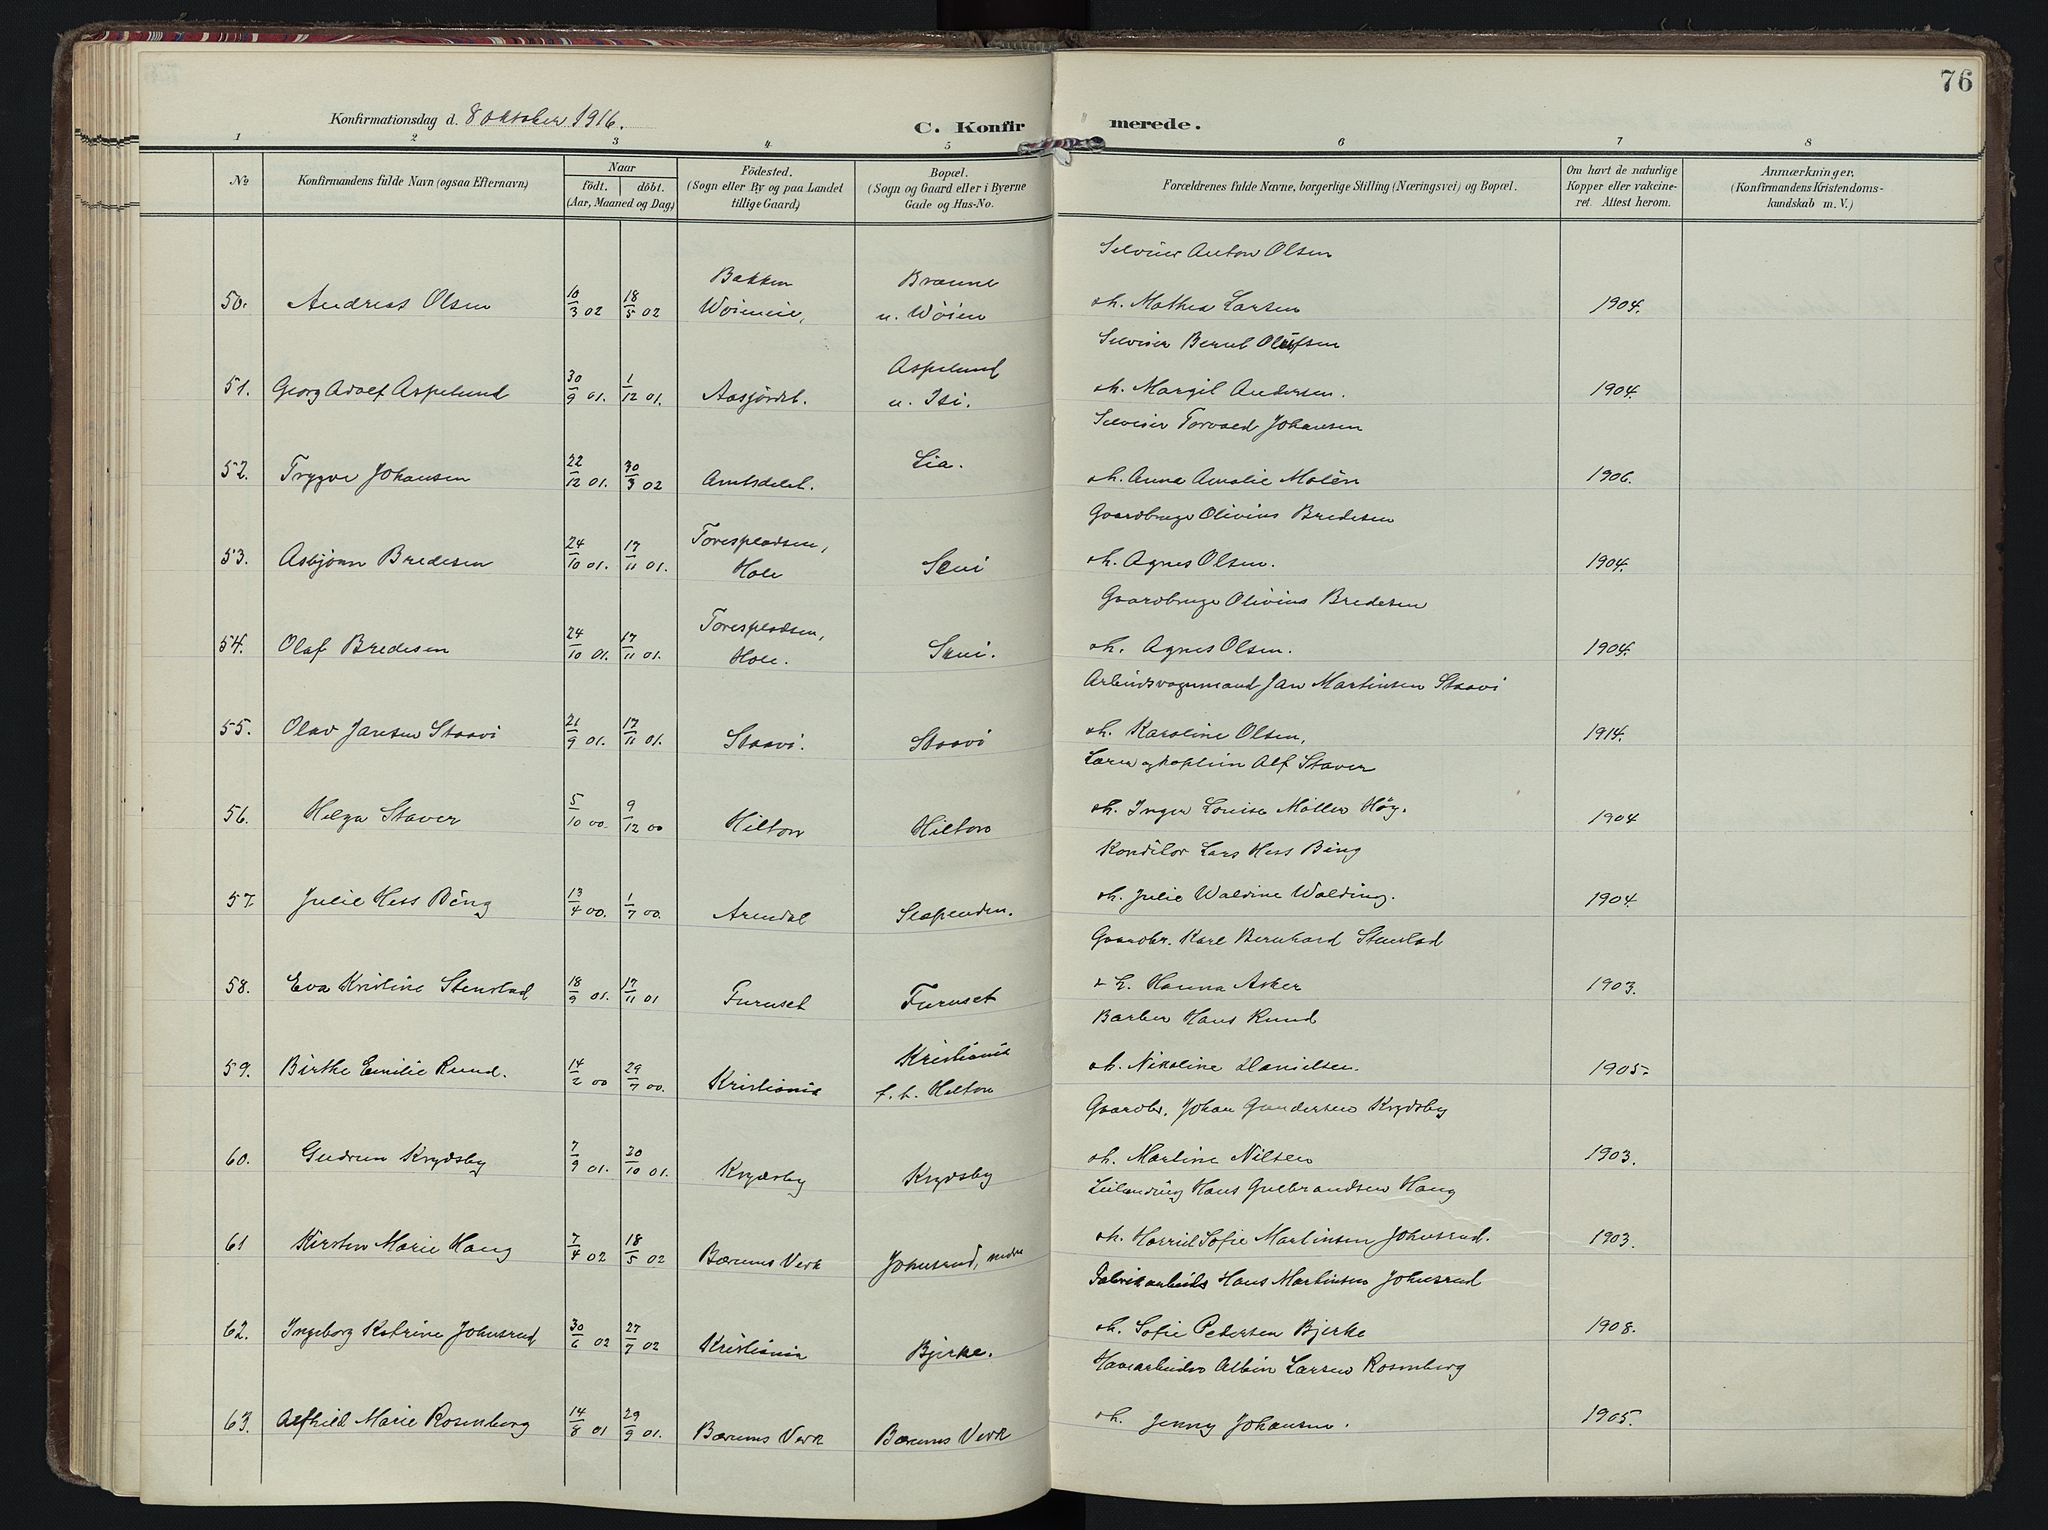 76
Konfirmationsdag d. 8 oktober 1916.
C. Konfirmerede.
1 2 3 4 5 6 7 8
No
Konfirmandens fulde Navn (ogsaa Efternavn)
Naar
födt. döbt.
(Aar, Maaned og Dag)
Födested.
(Sogn eller By og paa Landet
tillige Gaard)
Bopæl.
(Sogn og Gaard eller i Byerne
Gade og Hus-No.
Forældrenes fulde Navne, borgerlige Stilling (Næringsvei) og Bopæl.
Om havt de naturlige
Kopper eller vakcine-
ret. Attest herom.
Anmærkninger,
(Konfirmandens Kristendoms-
kundskab m. V.)
Selveier Anton Olsen
50. Andreas Olsen 10/3 02 18/5 02 Bakken Wöieneie, Brænne u. Wöien oh. Mathea Larsen 1904.
Selveier Bernt Olufsen
51. Georg Adolf Aspelund 30/9 01. 1/12 01. Aasjordet. Aspelund u. Isi. oh. Margit Andersen. 1904.
Selveier Torvald Johansen
52. Trygve Johansen 22/12 01. 30/3 02 Amtsdelet. Lia. oh. Anna Amalie Molén 1906.
Gaardbruge Olivius Bredesen
53. Asbjörn Bredesen 24/10 01. 17/11 01. Torespladsen, Hole Scui oh. Agnes Olsen. 1904.
Gaardbruge Olivius Bredesen
54. Olaf Bredesen 24/10 01. 17/11 01. Torespladsen, Hole. Scui. oh. Agnes Olsen. 1904.
Arbeidsvognmand Jan Martinsen Staavi
55. Olav Jansen Staavi 21/9 01. 17/11 01. Staavi. Staavi oh. Karoline Olsen, 1914.
Lærer og kaptein Alf Staver
56. Helga Staver 5/10 00. 9/12 00 Hilton Hilton oh. Inger Louise Möller Höy. 1904
Konditor Lars Hess Bing
57. Julie Hess Bing 13/4 00. 1/7 00. Arendal Slependen. oh. Julie Waldine Walding. 1904
Gaardbr. Karl Bernhard Stenstad
58. Eva Kristine Stenstad 18/9 01. 17/11 01 Furuset Furuset & h. Hanna Asker 1903.
Barber Hans Rund
59. Birthe Emilie Rund. 14/2 00 29/7 00. Kristiania Kristiania f. t. Hilton oh. Nikoline Danielsen. 1905.
Gaardbr. Johan Gundersen Krydsby
60. Gudrun Krydsby 7/9 01. 20/10 01. Krydsby Krydsby oh. Martine Nilsen 1903.
Leilending Hans Gulbrandsen Haug
61 Kirsten Marie Haug 7/4 02 18/5 02 Bærums Verk Johnsrud, nedre oh. Harriet Sofie Martinsen Johnsrud. 1903.
Fabrikarbeider Hans Martinsen Johnsrud
62. Ingeborg Katrine Johnsrud 30/6 02 27/7 02 Kristiania Bjerke. oh. Sofie Pedersen Bjerke 1908.
Havearbeider Albin Larsen Rosenberg
63. Alfhild Marie Rosenberg 14/8 01 29/9 01. Bærums Verk Bærums Verk oh. Jenny Johansen. 1905.